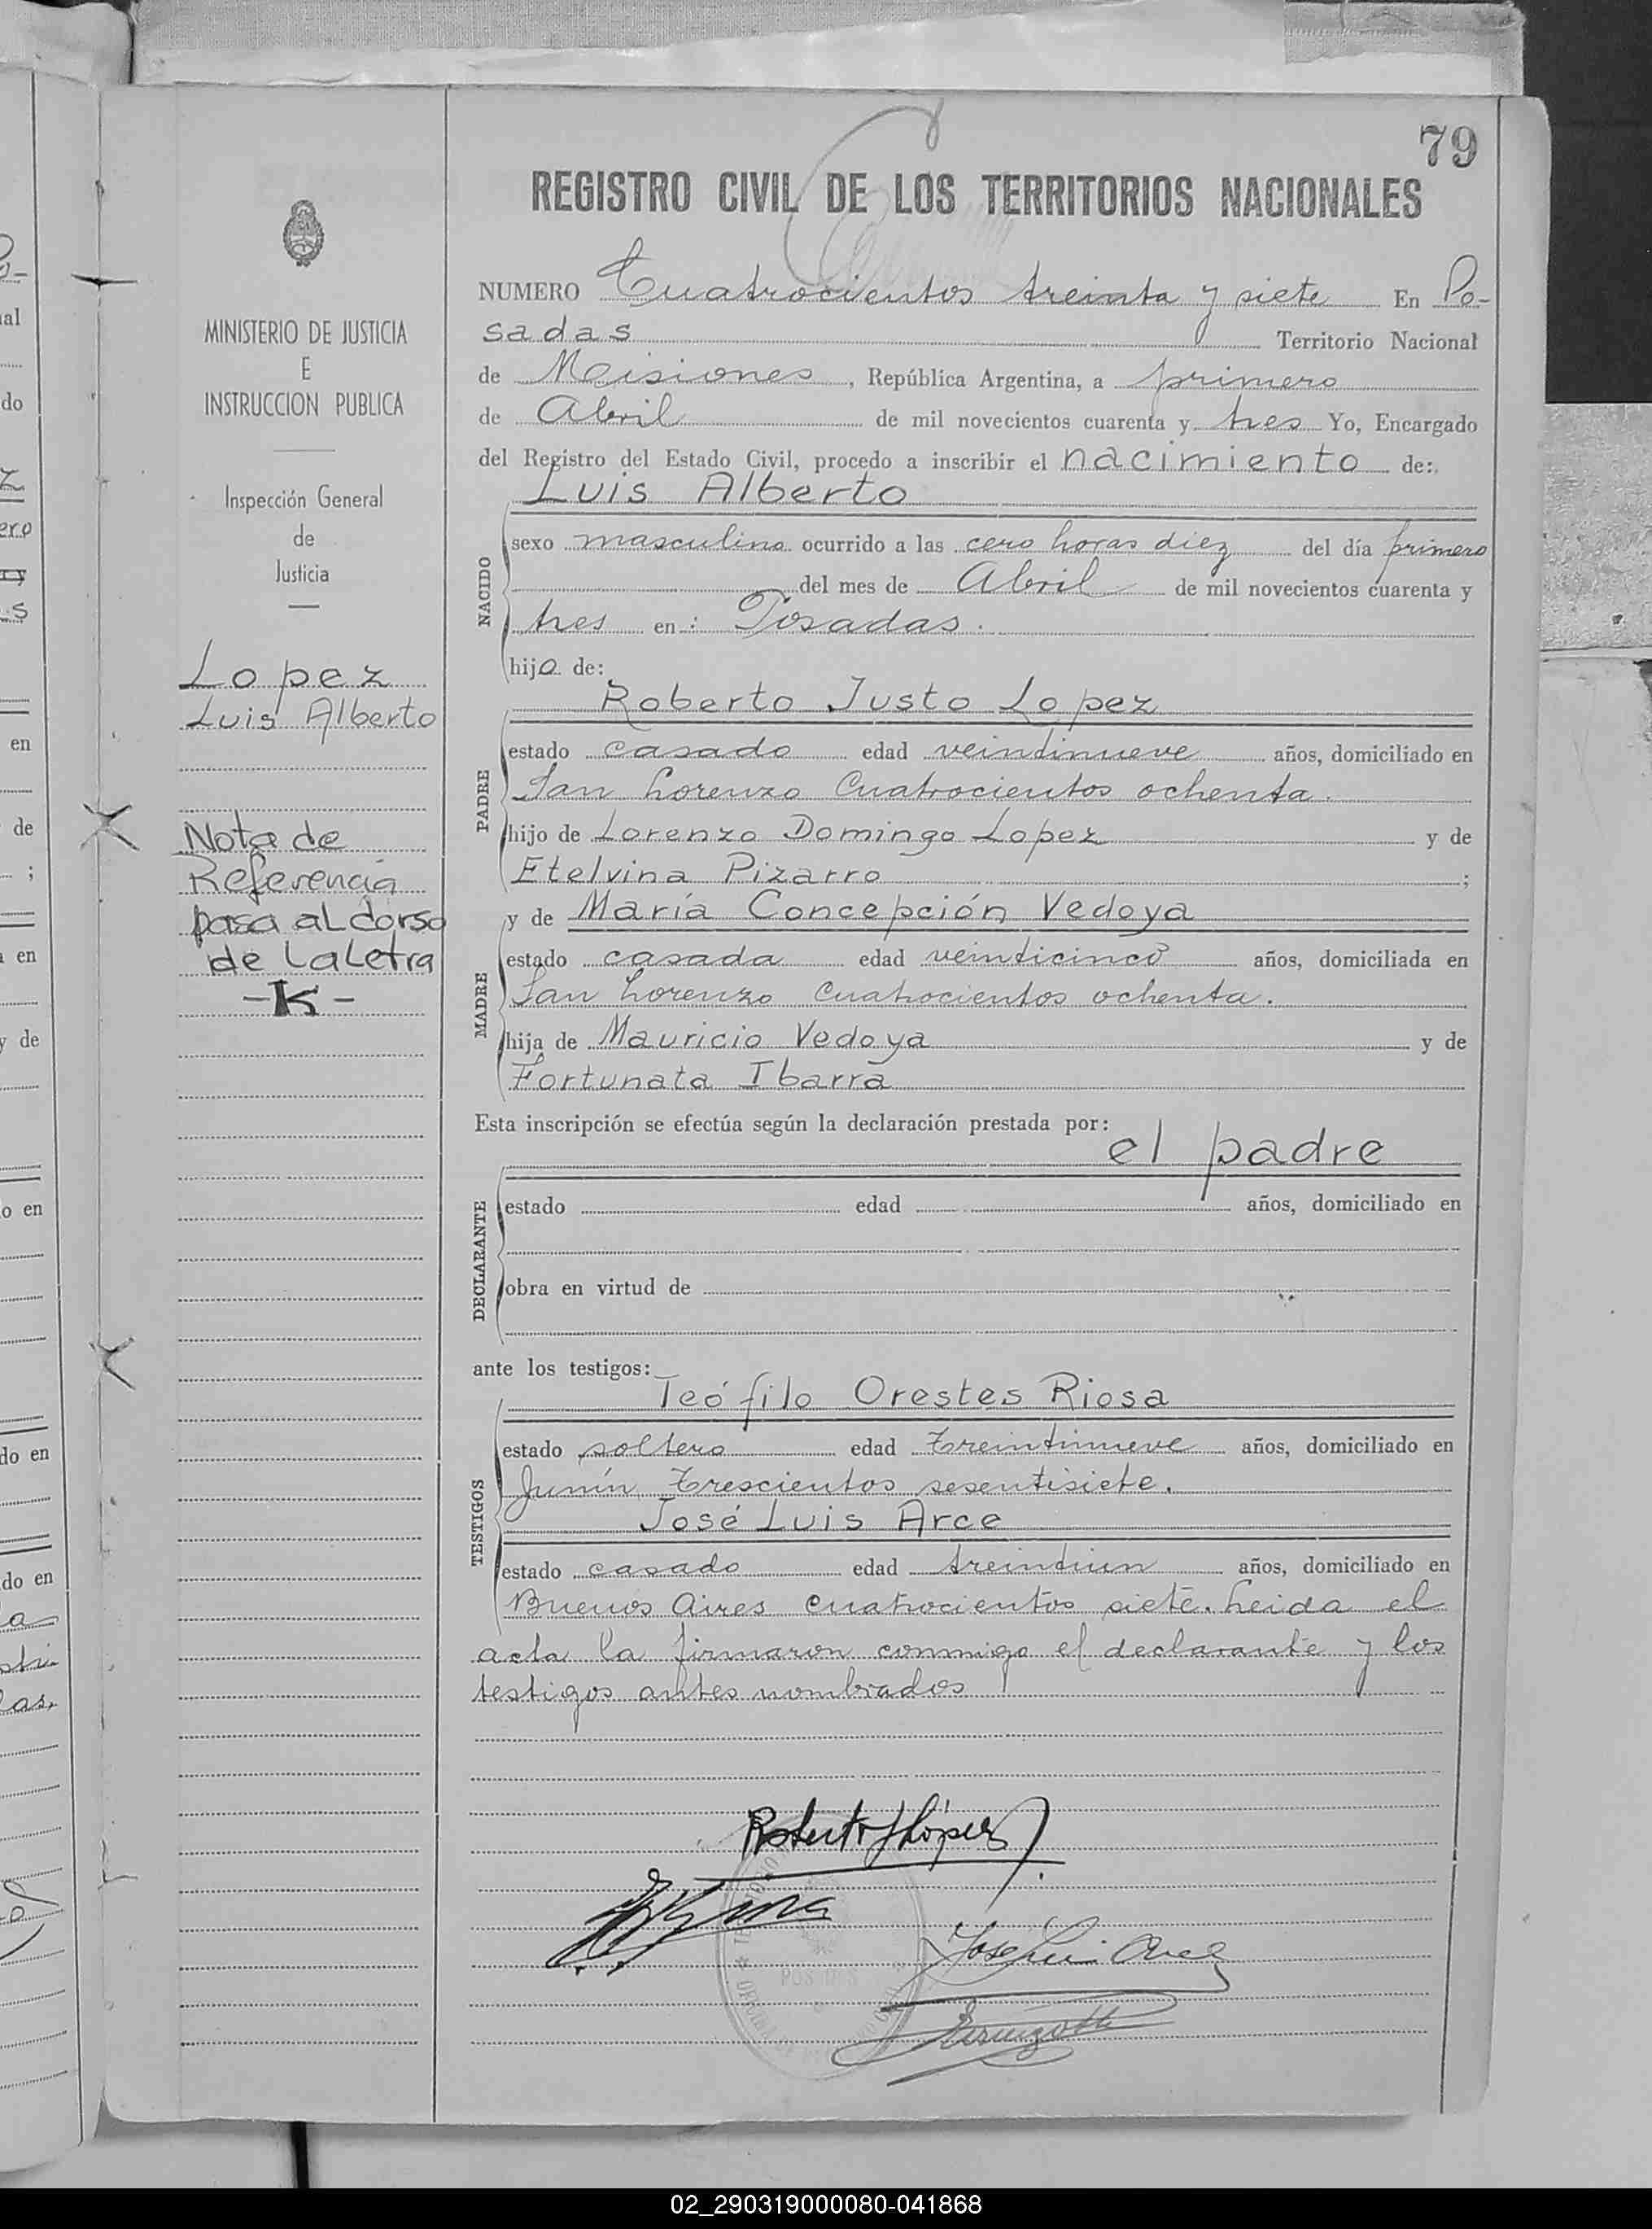 79
REGISTRO CIVIL DE LOS TERRITORIOS NACIONALES
MINISTERIO DE JUSTICIA
E
INSTRUCCION PUBLICA
Inspección General
de
Justicia
Lopez
Luis Alberto
Nota de
Referencia
pasa al dorso
de La Letra
-K-
NUMERO Cuatrocientos treinta y siete En Po-
sadas Territorio Nacional
de Misiones, República Argentina, a primero
de Abril de mil novecientos cuarenta y tres Yo, Encargado
del Registro del Estado Civil, procedo a inscribir el nacimiento de:
Luis Alberto
NACIDO
sexo masculino ocurrido a las cero horas diez del día primero
del mes de Abril de mil novecientos cuarenta y
tres en: Posadas.
hijo de:
Roberto Justo Lopez
PADRE
estado casado edad veintinueve años, domiciliado en
San Lorenzo Cuatrocientos ochenta.
hijo de Lorenzo Domingo Lopez y de
Etelvina Pizarro ;
y de María Concepción Vedoya
MADRE
estado casada edad veinticinco años, domiciliada en
San Lorenzo Cuatrocientos ochenta.
hija de Mauricio Vedoya y de
Fortunata Ibarra
Esta inscripción se efectúa según la declaración prestada por:
el padre
DECLARANTE
estado edad años, domiciliado en
obra en virtud de
ante los testigos:
Teófilo Orestes Riosa
TESTIGOS
estado soltero edad treintinueve años, domiciliado en
Junín Trescientos sesentisiete.
José Luis Arce
estado casado edad treintiun años, domiciliado en
Buenos Aires cuatrocientos siete. Leida el
acta la firmaron conmigo el declarante y los
testigos antes nombrados
Roberto J López
José Luis Arce
POSADAS
02_290319000080-041868